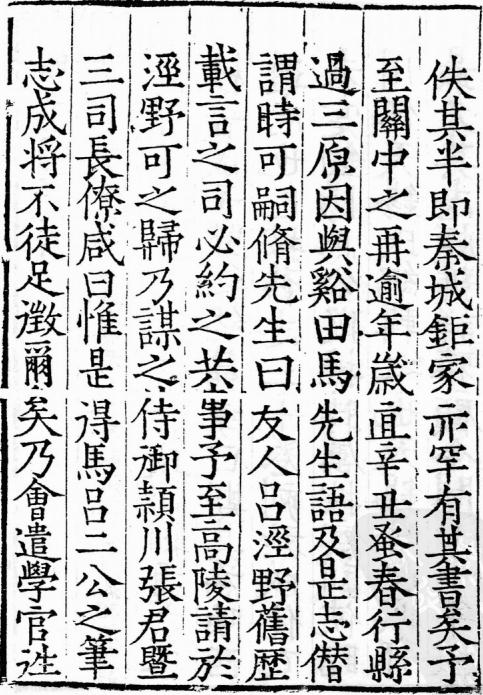 佚其半即秦城鉅家亦罕有其書矣予
至關中之再逾年歲直辛丑蚤春行縣
過三原因與谿田馬先生語及是志僣
謂時可嗣脩先生曰友人呂涇野舊歷
載言之司必約之共事予至高陵請於
涇野可之歸乃謀之侍御潁川張君暨
三司長僚咸曰惟是得馬呂二公之筆
志成将不徒足徵爾矣乃會遣學官